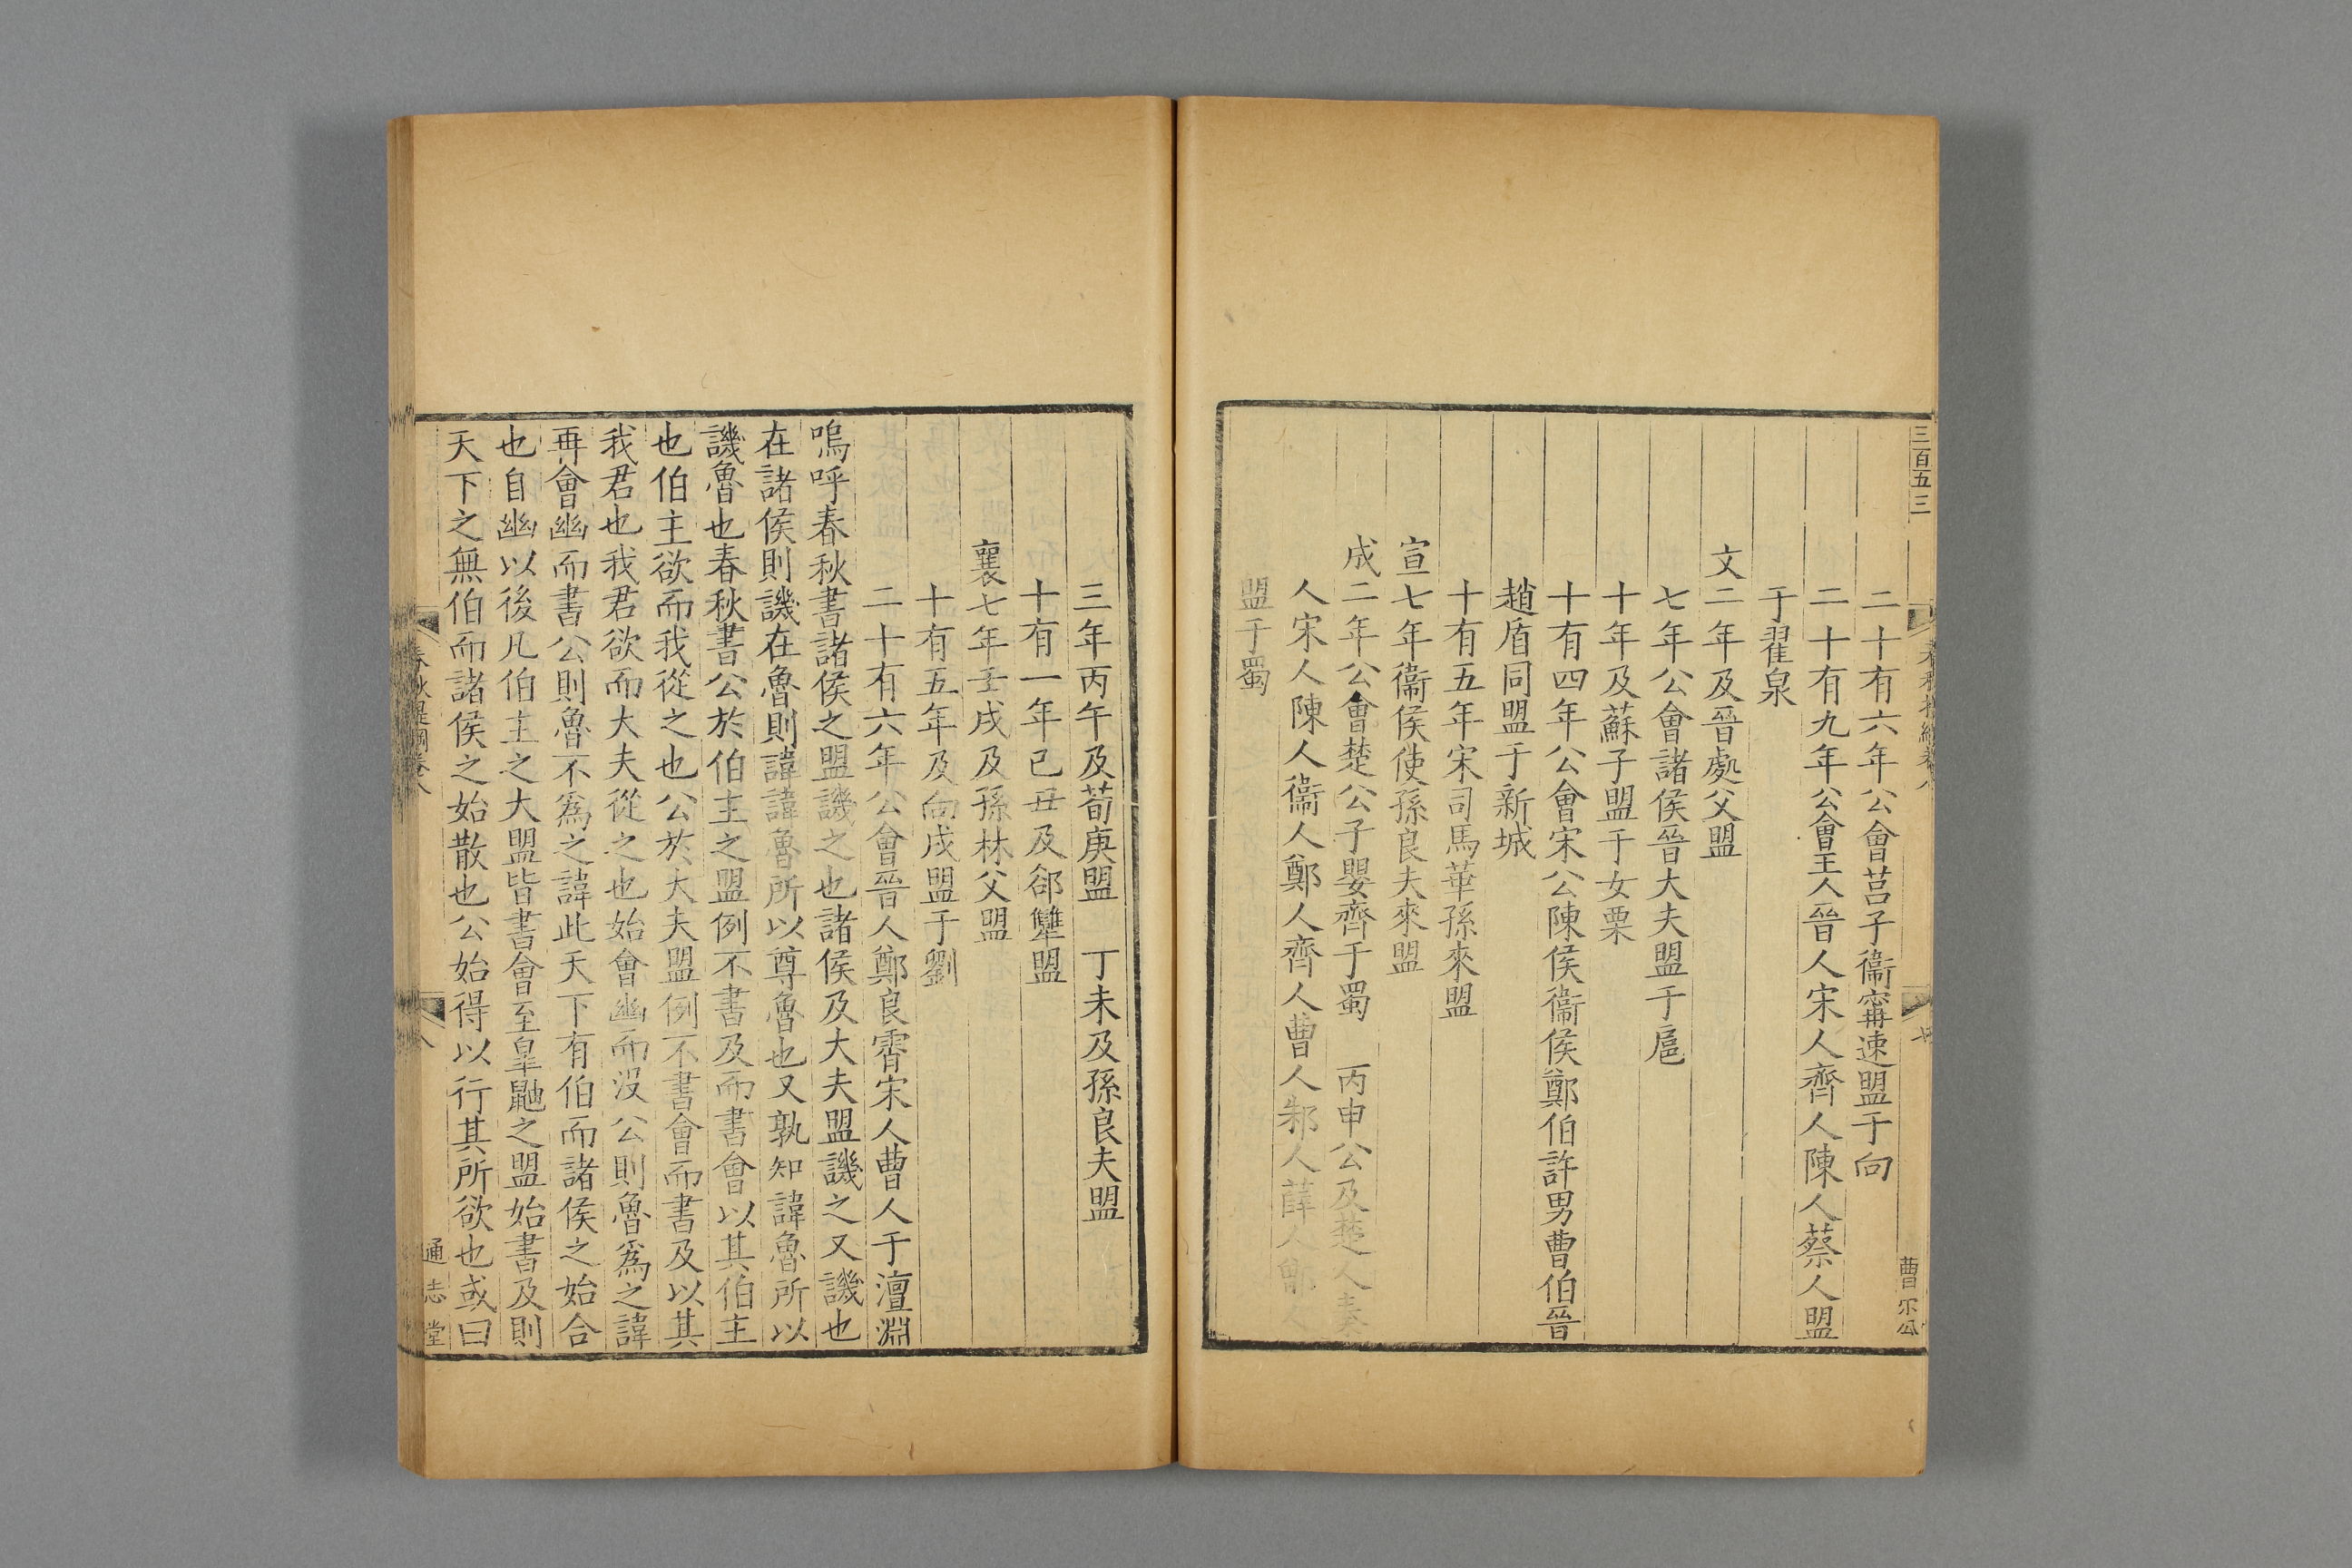 三百五三
曹宗公
二十有六年公會莒子衞甯速盟于向
二十有九年公會王人晉人宋人齊人陳人蔡人盟
于翟泉
文二年及晉處父盟
七年公會諸侯晉大夫盟于扈
十年及蘇子盟于女栗
十有四年公會宋公陳侯衞侯鄭伯許男曹伯晉
趙盾同盟于新城
十有五年宋司馬華孫來盟
宣七年衞侯使孫良夫來盟
成二年公會楚公子嬰齊于蜀 丙申公及楚人秦
人宋人陳人衞人鄭人齊人曹人邾人薛人鄫人
盟于蜀
三年丙午及荀庚盟 丁未及孫良夫盟
十有一年已丑及郤犨盟
襄七年壬戌及孫林父盟
十有五年及向戌盟于劉
二十有六年公會晉人鄭良霄宋人曹人于澶淵
嗚呼春秋書諸侯之盟譏之也諸侯及大夫盟譏之又譏也
在諸侯則譏在魯則諱諱魯所以尊魯也又孰知諱魯所以
譏魯也春秋書公於伯主之盟例不書及而書會以其伯主
也伯主欲而我從之也公於大夫盟例不書會而書及以其
我君也我君欲而大夫從之也始會幽而没公則魯爲之諱
再會幽而書公則魯不爲之諱此天下有伯而諸侯之始合
也自幽以後凡伯主之大盟皆書會至皐鼬之盟始書及則
天下之無伯而諸侯之始散也公始得以行其所欲也或曰
春秋提綱卷八
八
通志堂